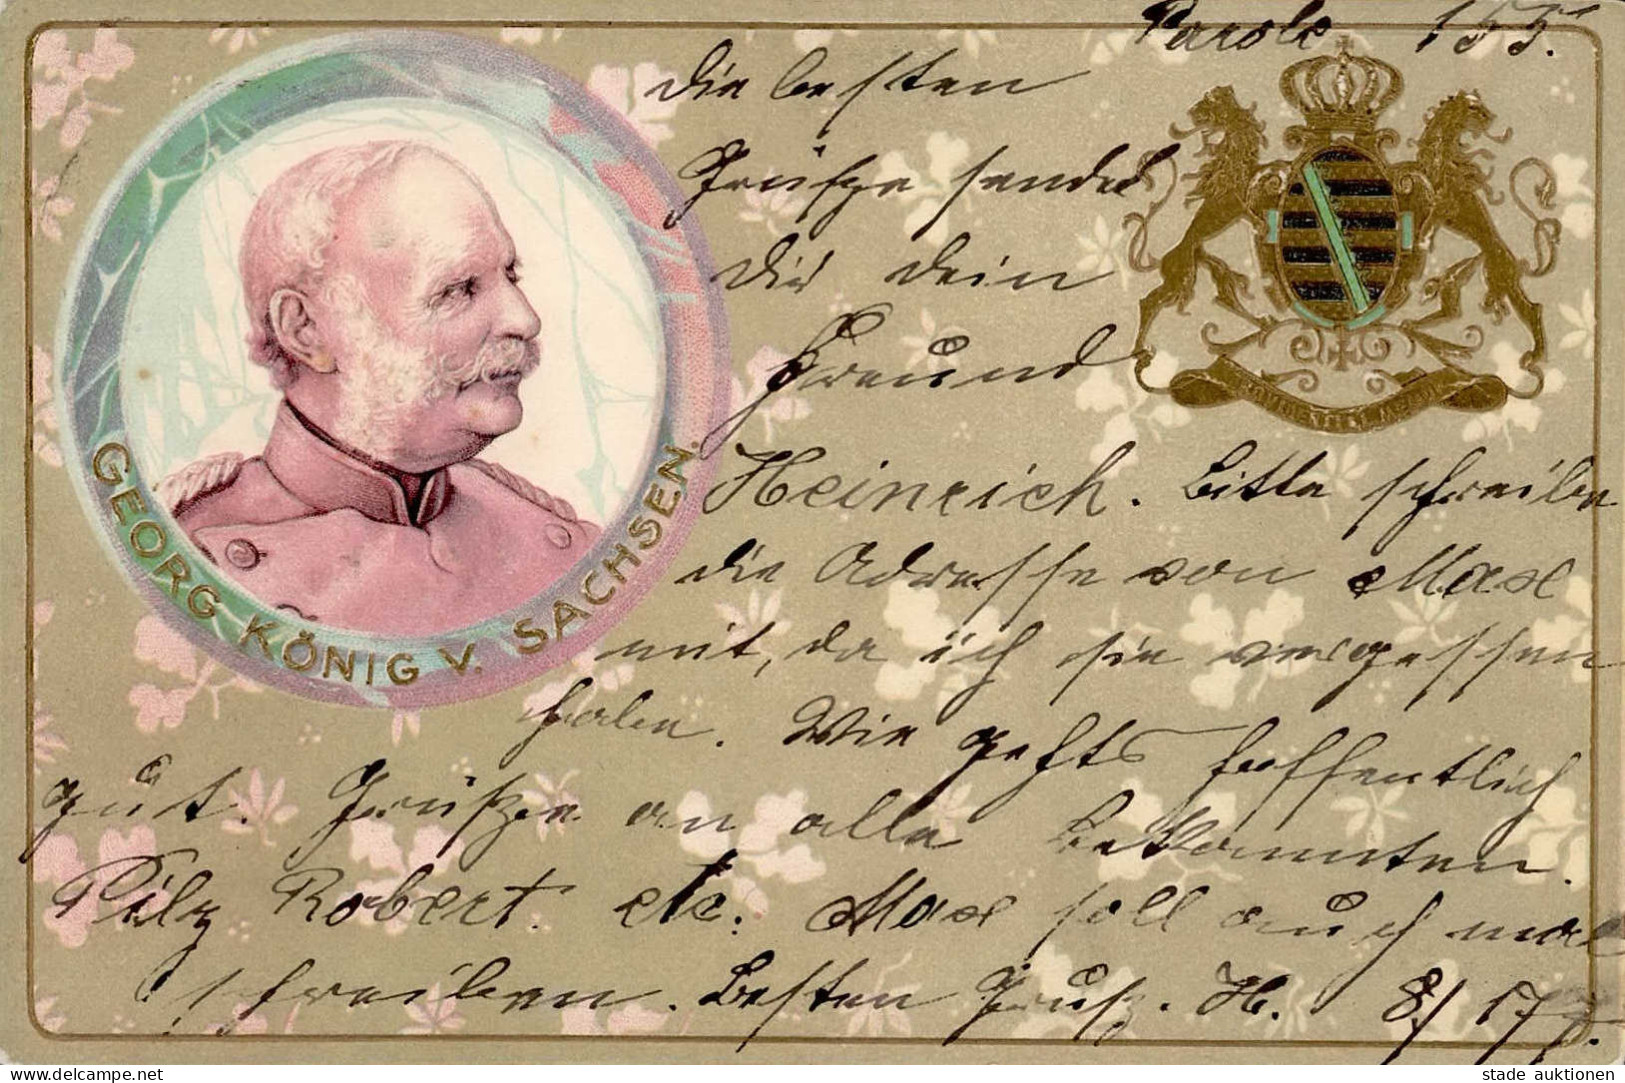 Parole 155.
die besten
Grüße sendet
Dir dein
Freund
Heinrich. Bitte schreibe
die Adresse von Max
mit, da ich sie vergessen
habe. Wie gehts hoffentlich
gut. Grüße an alle Bekannten.
Pilz Robert. etc. Max soll auch mal
schreiben. Besten Gruß. H. 8/
GEORG KÖNIG V. SACHSEN.
PROVIDENTIAE MEMOR
stade auktionen